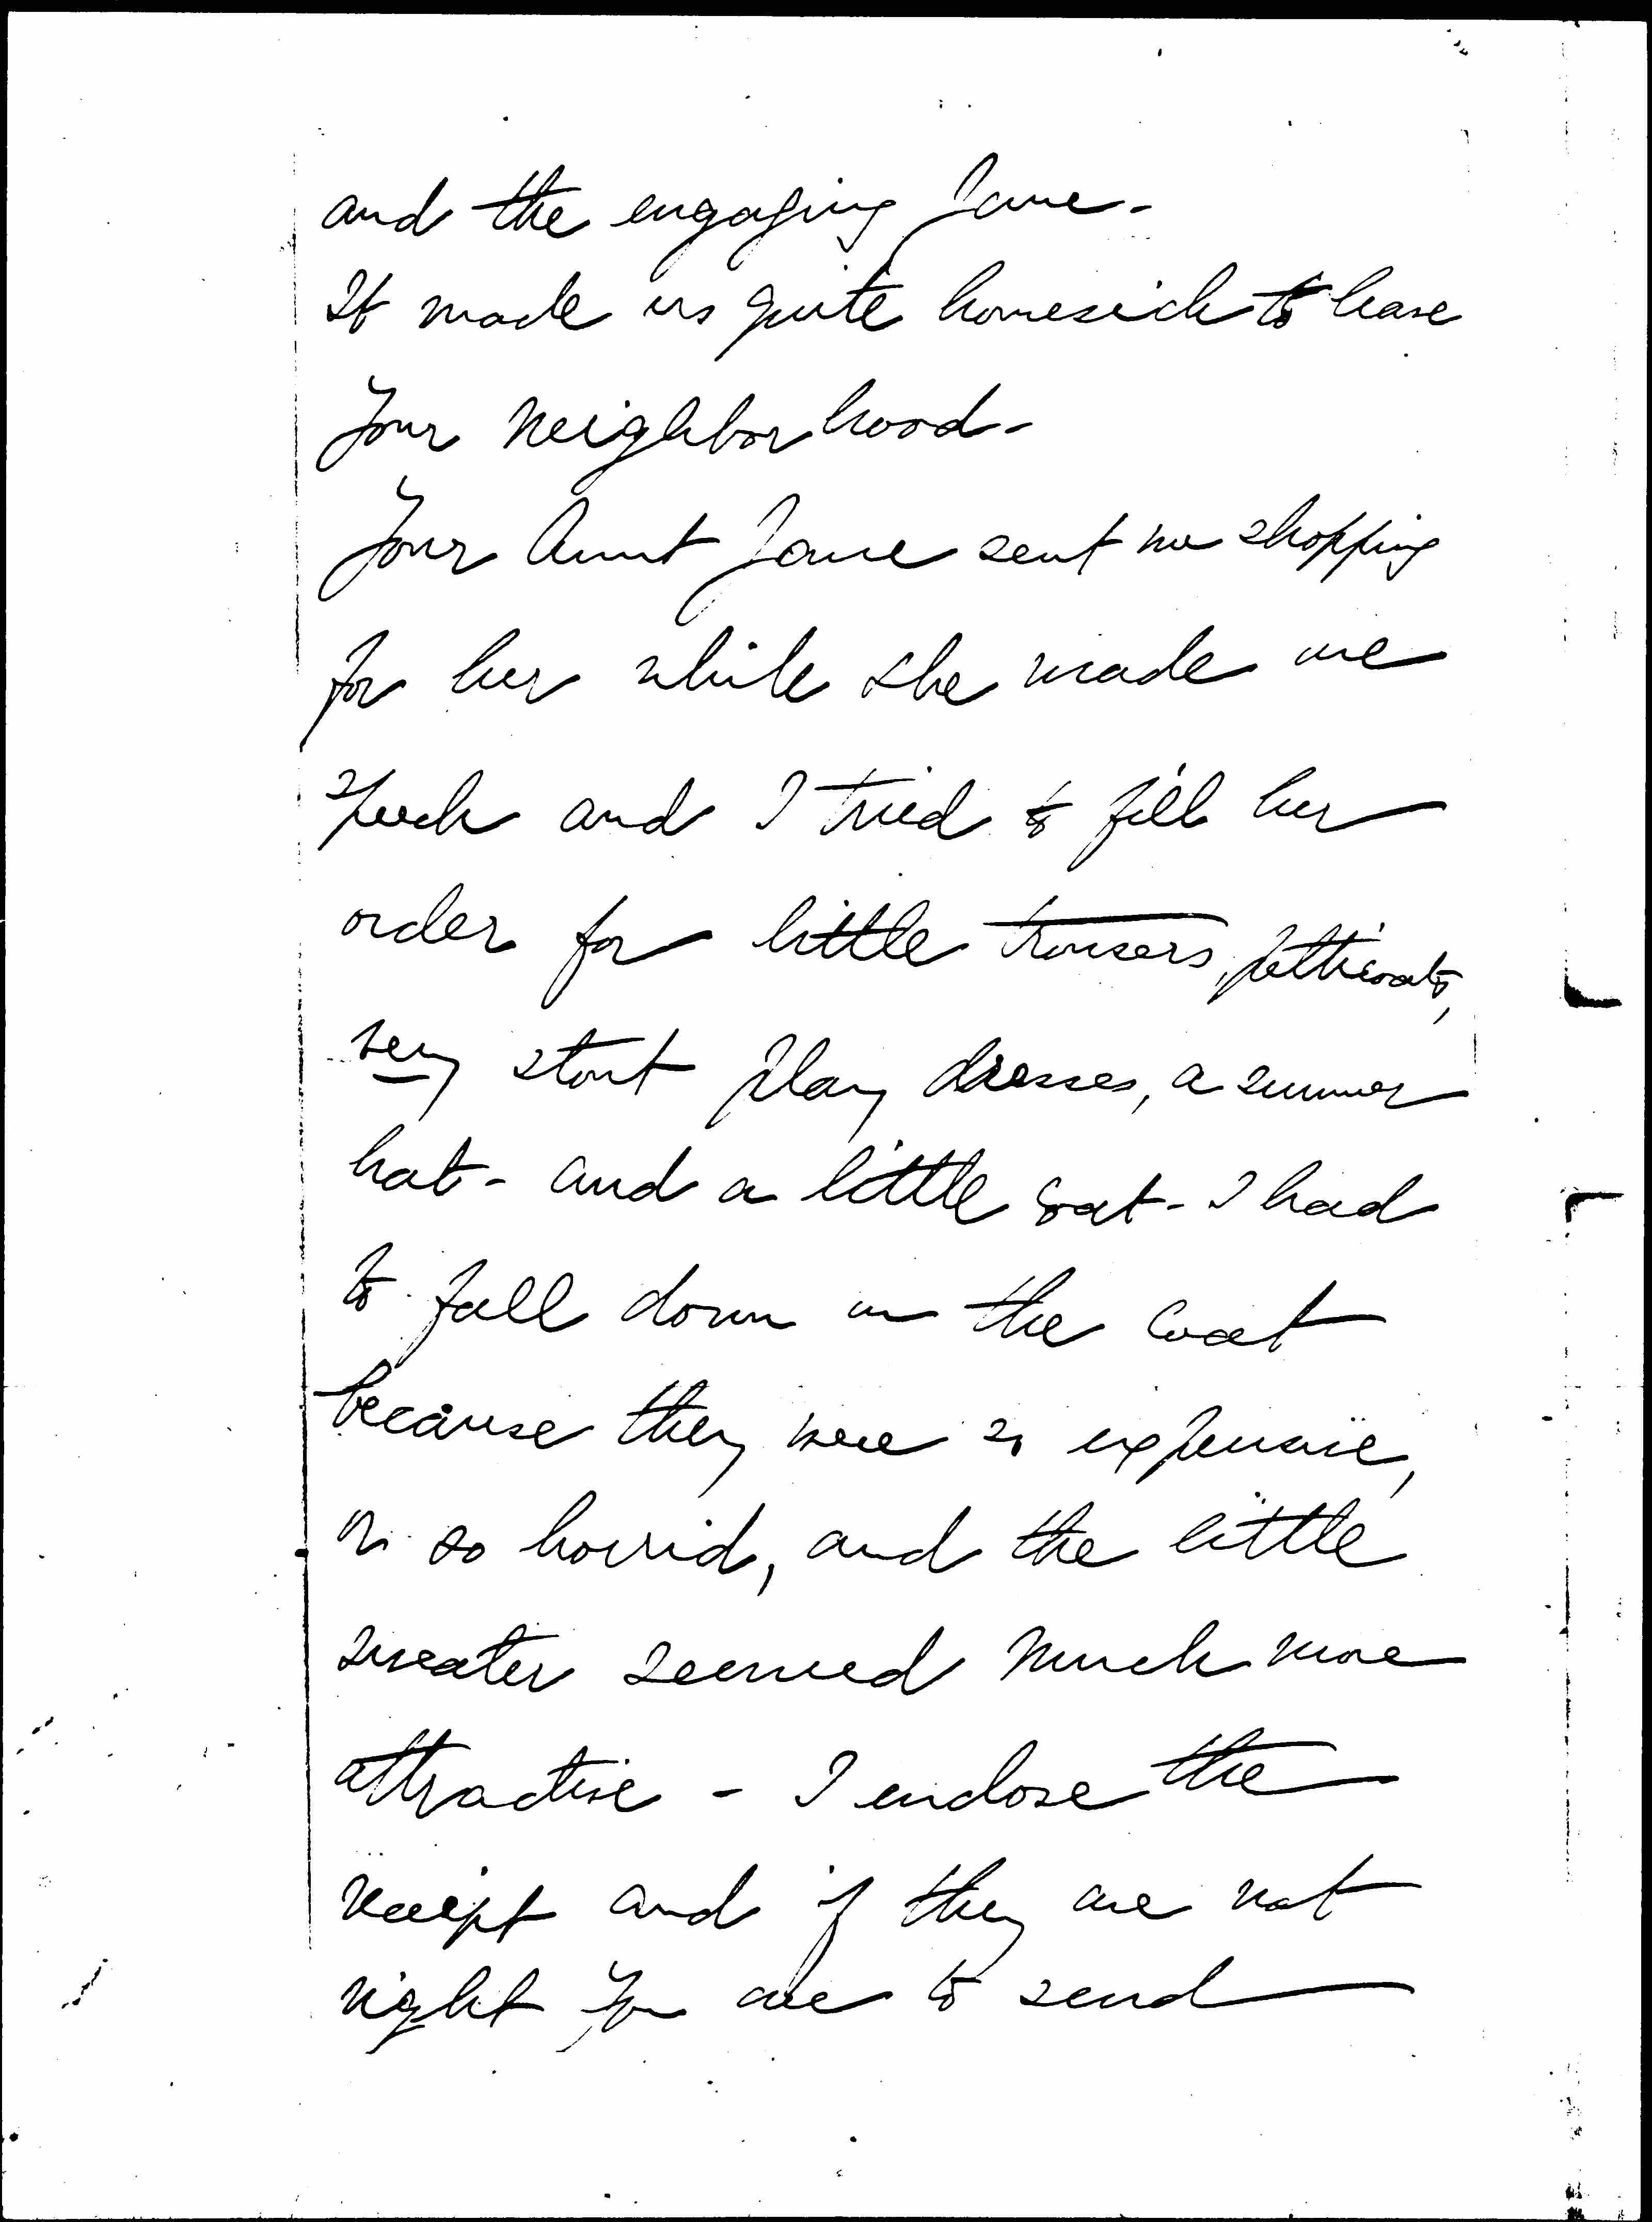 and the engaging Jane -
It made us quite homesick to leave
your neighborhood -
Your Aunt Jane sent me shopping
for her while she made me
speech and I tried to fill her
order for little trousers, petticoats,
very stout play dresses, a summer
hat - and a little coat - I had
to fall down on the coat
because they were so expensive,
or so horrid, and the little
sweater seemed much more
attractive - I enclose the
receipt and if they are not
right you are to send